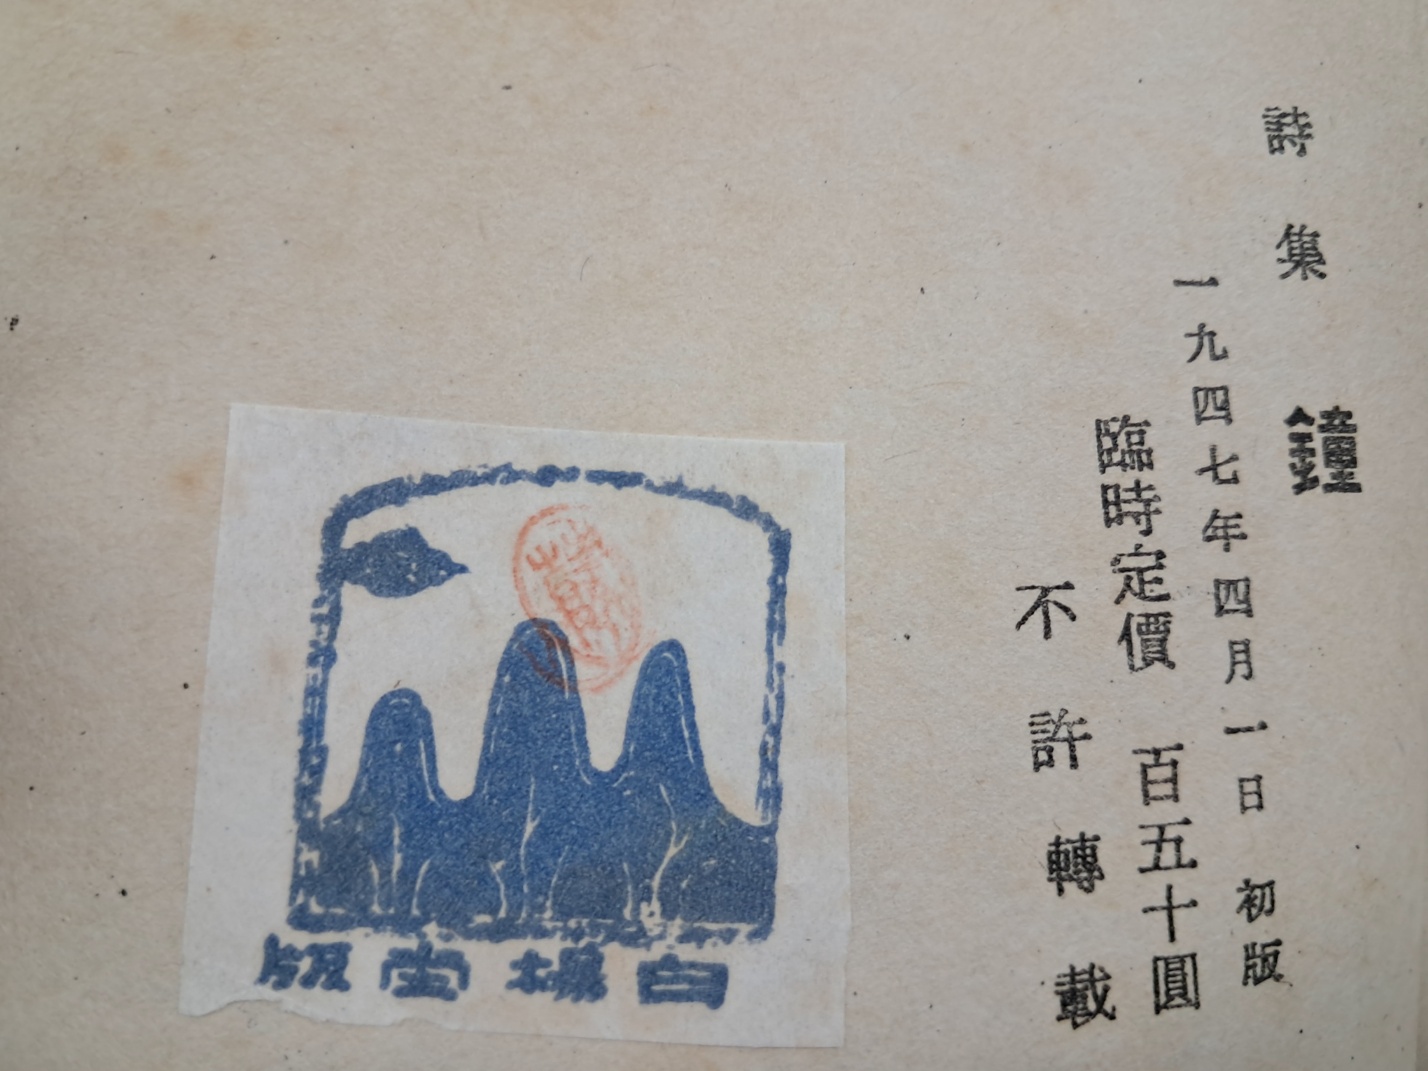 詩集 鐘
一九四七年四月一日 初版
臨時定價 百五十圓
不許轉載
白楊堂版